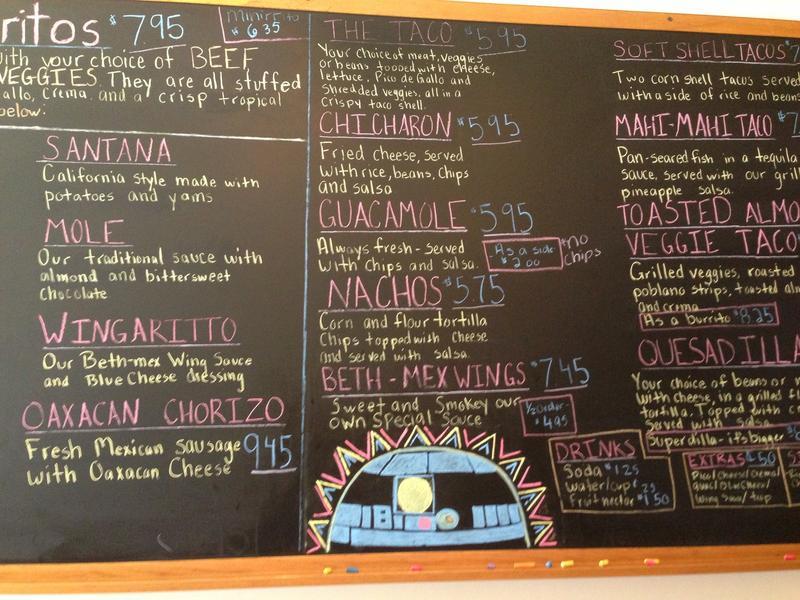 ritos $7.95
Miniritto
$6.35
with your choice of BEEF
VEGGIES. They are all stuffed
allo, Crema, and a crisp tropical
below:
SANTANA
California style made with
potatoes and yams
MOLE
Our traditional sauce with
almond and bittersweet
chocolate
WINGARITTO
Our Beth-mex Wing Sauce
and Blue Cheese dressing
OAXACAN CHORIZO
Fresh Mexican Sausage 9.45
with Oaxacan Cheese
THE TACO $5.95
Your choice of meat, veggies
or beans topped with cheese,
lettuce, Pico de Gallo and
shredded veggies, all in a
crispy taco shell.
CHICHARON $5.95
Fried cheese, served
with rice, beans, chips
and salsa
GUACAMOLE $5.95
Always fresh - served
with chips and salsa.
As a side
$2.00
*no
chips
NACHOS $5.75
Corn and flour tortilla
Chips topped with cheese
and served with salsa.
BETH-MEX WINGS $7.45
Sweet and Smokey our
own Special Sauce
1/2 order
$4.95
SOFT SHELL TACOS $7
Two corn shell tacos served
with a side of rice and beans
MAHI-MAHI TACO $7
Pan-seared fish in a tequila
sauce, served with our gril
pineapple salsa.
TOASTED ALMO
VEGGIE TACO
Grilled veggies, roasted
poblano strips, toasted alm
and crema
As a burrito $8.25
QUESADILLA
Your choice of beans or
with cheese, in a grilled fl
tortilla. Topped with c
Served with salsa
Superdilla - it's bigger $
DRINKS
Soda $1.25
water/cup $.25
fruit nectar $1.50
EXTRAS $.50
Pico/Cheese/Crema/
guac/Blu Cheese/
Wing Sauce/